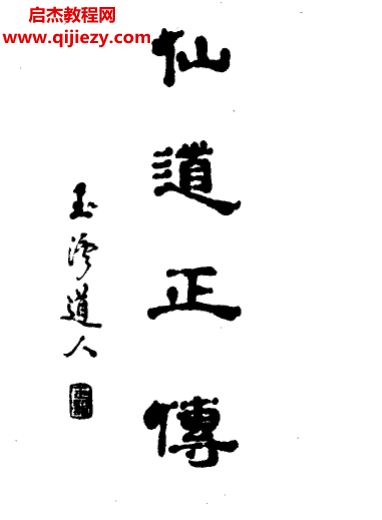 启杰教程网
www.qijiezy.com
仙道正傳
道人